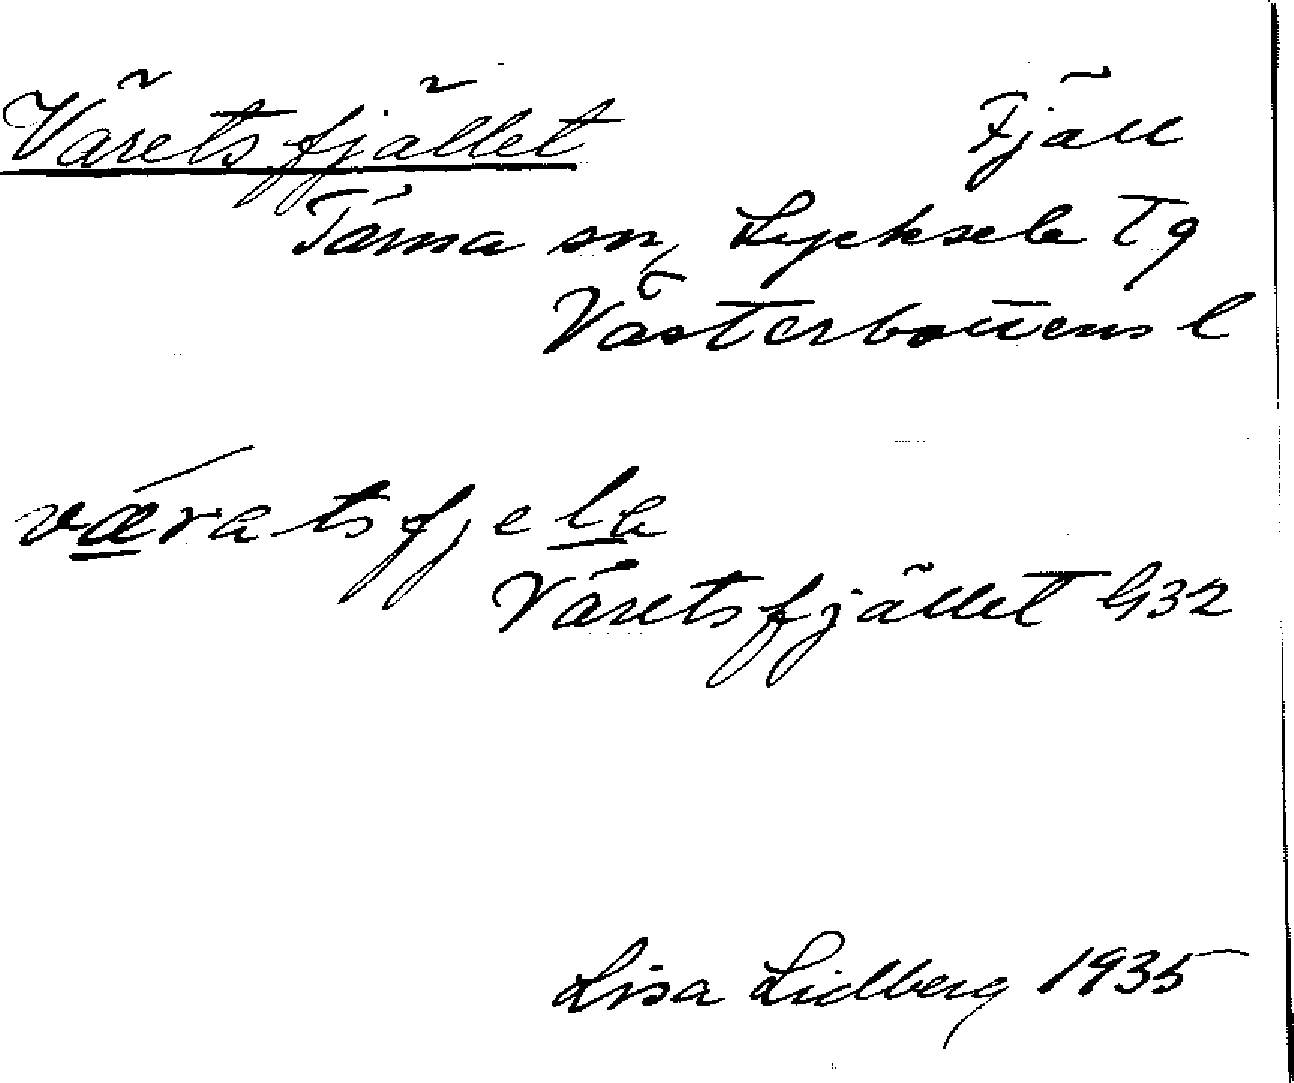 Väretsfjället Fjäll
Tärna sn, Lycksele Tg
Västerbottens l
væratsfjela
Väretsfjället G32
Lisa Lidberg 1935